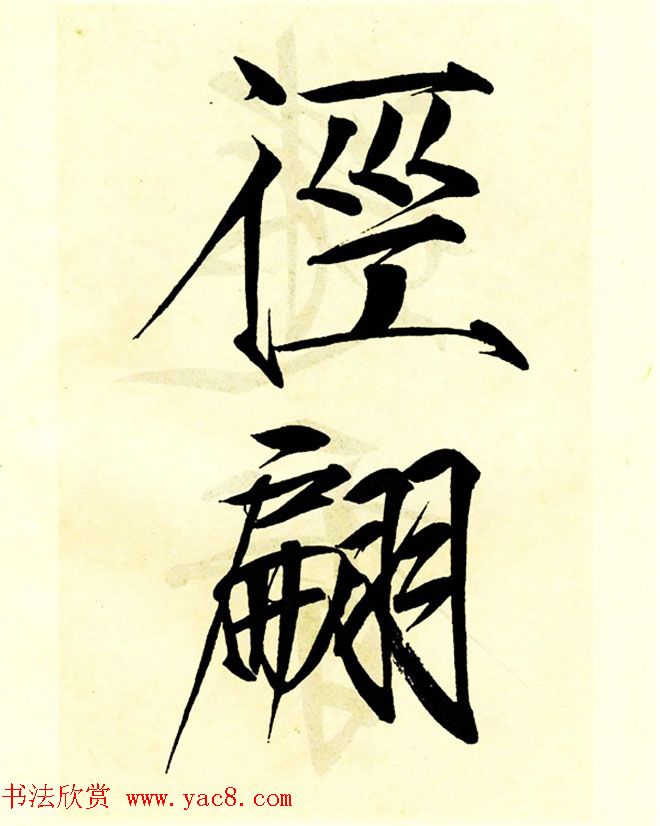 徑
翩
书法欣赏 www.yac8.com